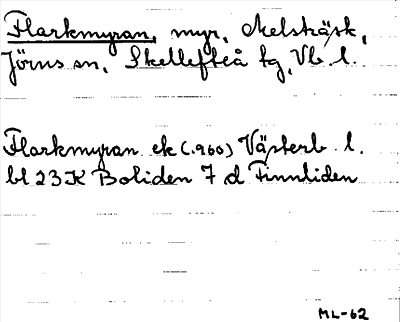 Flarkmyran, myr, Melsträsk,
Jörns sn, Skellefteå tg, Vb l.
Flarkmyran ek (.960) Västerb. l.
bl 23K Boliden 7 d Finnliden
ML-62